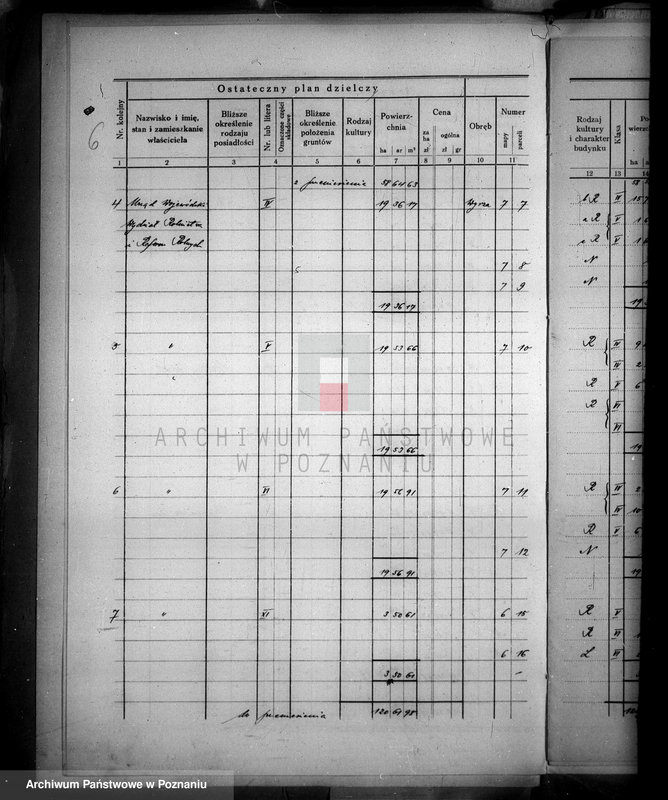 6
Ostateczny plan dzielczy
Nr. kolejny
Nazwisko i imię, stan i zamieszkanie właściciela
Bliższe określenie rodzaju posiadłości
Nr. lub litera
Oznaczone części składowe
Bliższe określenie położenia gruntów
Rodzaj kultury
Powierzchnia
ha ar m²
Cena
za ha
zł
ogólna
zł gr
Obręb
Numer
mapy parceli
Rodzaj kultury i charakter budynku
Klasa
1 2 3 4 5 6 7 8 9 10 11 12 13
z przeniesienia 58 64 63
4 Urząd Wojewódzki IV 19 36 17 7 7 R
Wydział Rolnictwa
i Reform Rolnych
7 8 N
7 9 N
19 36 17
" V 19 53 66 7 10 R
R V
R VI
19 53 66
6 " VI 19 56 91 7 11 R
R V
7 12 N
19 56 91
7 " XI 3 50 61 6 15 R V
R VI
6 16 Ł VI
3 50 61
do przeniesienia 120 61 98
ARCHIWUM PAŃSTWOWE
W POZNANIU
Archiwum Państwowe w Poznaniu